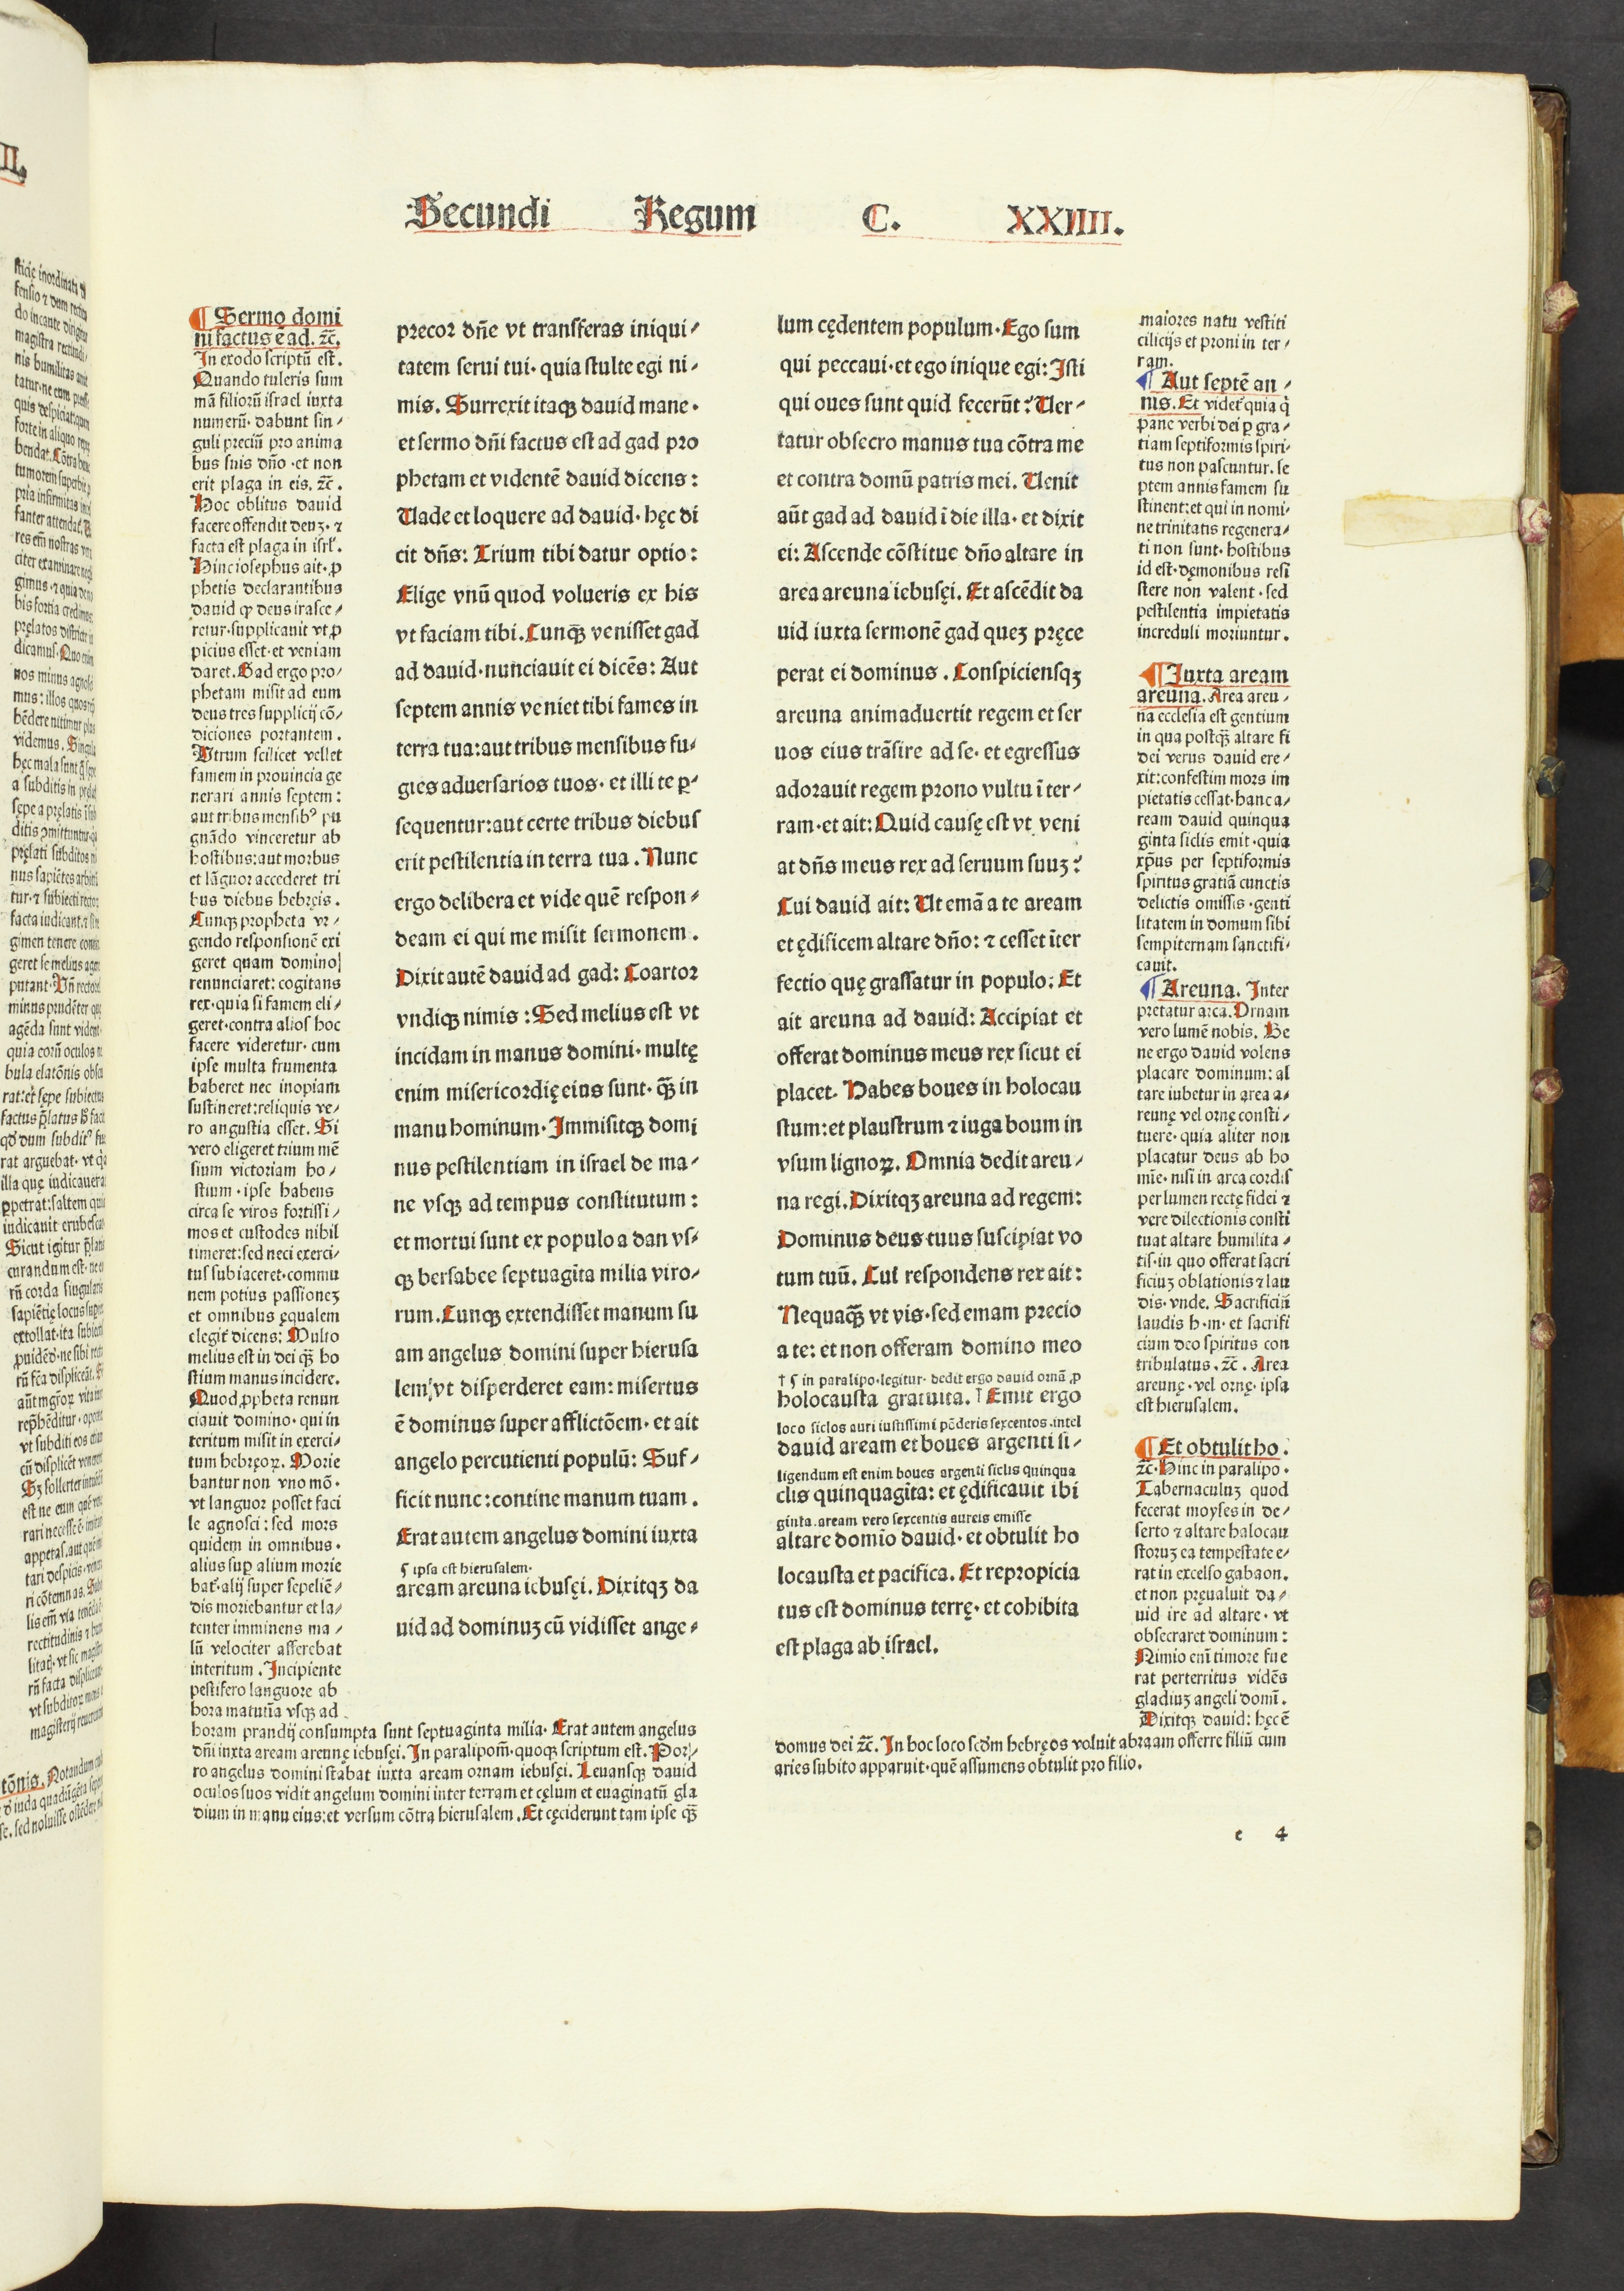 Secundi Regum C. XXIIII.
¶ Sermo domi
ni factus ē ad. ⁊c̄.
In exodo scriptū est.
Quando tuleris sum
mā filiorū israel iuxta
numerū· dabunt sin⸗
guli preciū pro anima
bus suis dño ·et non
erit plaga in eis. ⁊c̄.
Hoc oblitus dauid
facere offendit deuꝫ· ⁊
facta est plaga in isrl'.
Hinc iosephus ait· ꝓ
phetis declarantibus
dauid ꝙ deus irasce⸗
retur·supplicauit vt ꝓ
picius esset·et veniam
daret. Gad ergo pro⸗
phetam misit ad eum
deus tres supplicij cō⸗
diciones portantem.
Utrum scilicet vellet
famem in prouincia ge
nerari annis septem:
aut tribus mensibꝰ pu
gnādo vinceretur ab
hostibus: aut morbus
et lāguor accederet tri
bus diebus hebręis.
Cunqꝫ propheta vr⸗
gendo responsionē exi
geret quam domino
renunciaret: cogitans
rex·quia si famem eli⸗
geret·contra alios hoc
facere videretur· cum
ipse multa frumenta
haberet nec inopiam
sustineret: reliquis ve⸗
ro angustia esset. Si
vero eligeret trium mē
sium victoriam ho⸗
stium · ipse habens
circa se viros fortissi⸗
mos et custodes nihil
timeret: sed neci exerci⸗
tus subiaceret·commu
nem potius passioneꝫ
et omnibus ęqualem
elegit dicens: Multo
melius est in dei qꝫ̄ ho
stium manus incidere.
Quod ꝓpheta renun
ciauit domino· qui in
teritum misit in exerci⸗
tum hebręoꝝ. Morie
bantur non vno mō·
vt languor posset faci
le agnosci: sed mors
quidem in omnibus.
alius suꝑ alium morie
bat̄·alij super sepeliē⸗
dis moriebantur et la⸗
tenter imminens ma⸗
lū velociter afferebat
interitum. Incipiente
pestifero languore ab
hora matutīa vsqꝫ ad
horam prandij consumpta sunt septuaginta milia· Erat autem angelus
dñi iuxta aream areunę iebusęi. In paralipom̄·quoqꝫ scriptum est. Por⸗
ro angelus domini stabat iuxta aream ornam iebusęi. Leuansqꝫ dauid
oculos suos vidit angelum domini inter terram et cęlum et euaginatū gla
dium in manu eius: et versum cōtra hierusalem. Et cęciderunt tam ipse qꝫ̄
precor dñe vt transferas iniqui⸗
tatem serui tui· quia stulte egi ni⸗
mis. Surrexit itaqꝫ dauid mane·
et sermo dñi factus est ad gad pro
phetam et videntē dauid dicens:
Vade et loquere ad dauid· hęc di
cit dñs: Trium tibi datur optio:
Elige vnū quod volueris ex his
vt faciam tibi. Cunqꝫ̄ venisset gad
ad dauid·nunciauit ei dicēs: Aut
septem annis veniet tibi fames in
terra tua: aut tribus mensibus fu⸗
gies aduersarios tuos· et illi te ꝑ⸗
sequentur: aut certe tribus diebus
erit pestilentia in terra tua. Nunc
ergo delibera et vide quē respon⸗
deam ei qui me misit sermonem.
Dixit autē dauid ad gad: Coartor
vndiqꝫ nimis: Sed melius est vt
incidam in manus domini· multę
enim misericordię eius sunt· qꝫ̄ in
manu hominum· Immisitqꝫ domi
nus pestilentiam in israel de ma⸗
ne vsqꝫ ad tempus constitutum:
et mortui sunt ex populo a dan vs⸗
qꝫ bersabee septuagīta milia viro⸗
rum. Cunqꝫ extendisset manum su
am angelus domini super hierusa
lem vt disperderet eam: misertus
ē dominus super afflictōem· et ait
angelo percutienti populū: Suf⸗
ficit nunc: contine manum tuam.
Erat autem angelus domini iuxta
¶ ipsa est hierusalem·
aream areuna iebusęi. Dixitqꝫ da
uid ad dominuꝫ cū vidisset ange⸗
lum cędentem populum· Ego sum
qui peccaui·et ego inique egi: Isti
qui oues sunt quid fecerūt? Uer⸗
tatur obsecro manus tua cōtra me
et contra domū patris mei. Uenit
aūt gad ad dauid ī die illa· et dixit
ei: Ascende cōstitue dño altare in
area areuna iebusęi. Et ascēdit da
uid iuxta sermonē gad queꝫ pręce
perat ei dominus. Conspiciensqꝫ
areuna animaduertit regem et ser
uos eius trāsire ad se· et egressus
adorauit regem prono vultu ī ter⸗
ram·et ait: Quid causę est vt veni
at dñs meus rex ad seruum suuꝫ?
Cui dauid ait: Ut emā a te aream
et ędificem altare dño: ⁊ cesset īter
fectio quę grassatur in populo: Et
ait areuna ad dauid: Accipiat et
offerat dominus meus rex sicut ei
placet. Habes boues in holocau
stum: et plaustrum ⁊ iuga boum in
vsum lignoꝝ. Omnia dedit areu⸗
na regi. Dixitqꝫ areuna ad regem:
Dominus deus tuus suscipiat vo
tum tuū. Cui respondens rex ait:
Nequaqꝫ̄ vt vis·sed emam precio
a te: et non offeram domino meo
† ¶ in paralipo·legitur· dedit ergo dauid ornā ꝓ
holocausta gratuita. † Emit ergo
loco siclos auri iustissimi pōderis sexcentos·intel
dauid aream et boues argenti si⸗
ligendum est enim boues argenti siclis quinqua
clis quinquagīta: et ędificauit ibi
ginta·aream vero sexcentis aureis emisse
altare domīo dauid· et obtulit ho
locausta et pacifica. Et repropicia
tus est dominus terrę· et cohibita
est plaga ab israel.
maiores natu vestiti
cilicijs et proni in ter⸗
ram.
¶ Aut septē an⸗
nis. Et videt̄ quia q̄
pane verbi dei ꝑ gra⸗
tiam septiformis spiri⸗
tus non pascuntur. se
ptem annis famem su
stinent: et qui in nomi⸗
ne trinitatis regenera⸗
ti non sunt· hostibus
id est·dęmonibus resi
stere non valent · sed
pestilentia impietatis
increduli moriuntur.
¶ Iuxta aream
areuna. Area areu⸗
na ecclesia est gentium
in qua postqꝫ̄ altare fi
dei verus dauid ere⸗
xit: confestim mors im
pietatis cessat·hanc a⸗
ream dauid quinqua
ginta siclis emit·quia
xp̄us per septiformis
spiritus gratiā cunctis
delictis omissis·genti
litatem in domum sibi
sempiternam sanctifi⸗
cauit.
¶ Areuna. Inter
pretatur arca. Ornam
vero lumē nobis. Be
ne ergo dauid volens
placare dominum: al
tare iubetur in area a⸗
reunę vel ornę consti⸗
tuere· quia aliter non
placatur deus ab ho
mīe· nisi in arca cordis
per lumen rectę fidei ⁊
vere dilectionis consti
tuat altare humilita⸗
tis·in quo offerat sacri
ficiuꝫ oblationis ⁊ lau
dis· vnde. Sacrificiū
laudis h·m· et sacrifi
cium deo spiritus con
tribulatus. ⁊c̄. Area
areunę· vel ornę· ipsa
est hierusalem.
¶ Et obtulit ho.
⁊c̄· Hinc in paralipo·
Tabernaculuꝫ quod
fecerat moyses in de⸗
serto ⁊ altare holocau
storuꝫ ea tempestate e⸗
rat in excelso gabaon.
et non pręualuit da⸗
uid ire ad altare· vt
obsecraret dominum:
Nimio enī timore fue
rat perterritus vidēs
gladiuꝫ angeli domī.
Dixitqꝫ dauid: hęc ē
domus dei ⁊c̄. In hoc loco scd̄m hebręos voluit abraam offerre filiū cum
aries subito apparuit·quē assumens obtulit pro filio.
e 4